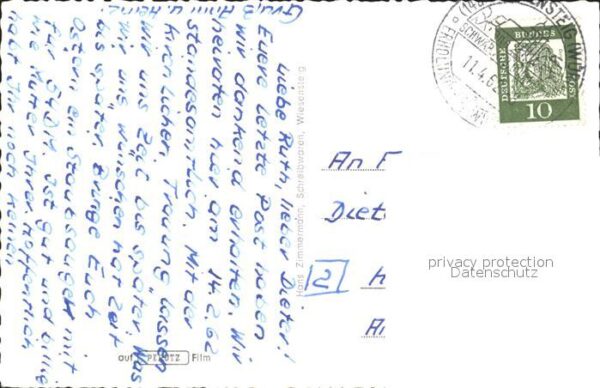 Liebe Ruth, lieber Dieter!
Euere letzte Post haben
wir dankend erhalten. Wir
heiraten hier am 14.2.62
standesamtlich. Mit der
kirchlichen Trauung lassen
wir uns Zeit bis später. Was
wir uns wünschen hat Zeit
bis später. Bringe Euch
Ostern ein Staubsauger mit
für 54 DM. Ist gut und billig
wie Mutter ihrer. Hoffentlich
habt Ihr noch keinen
Gruß
u. Heinz
Hans Zimmermann, Schreibwaren, Wiesensteig
auf PERUTZ Film
An F
Diet
2
DEUTSCHE BUNDES
10
11.4.6
privacy protection
Datenschutz